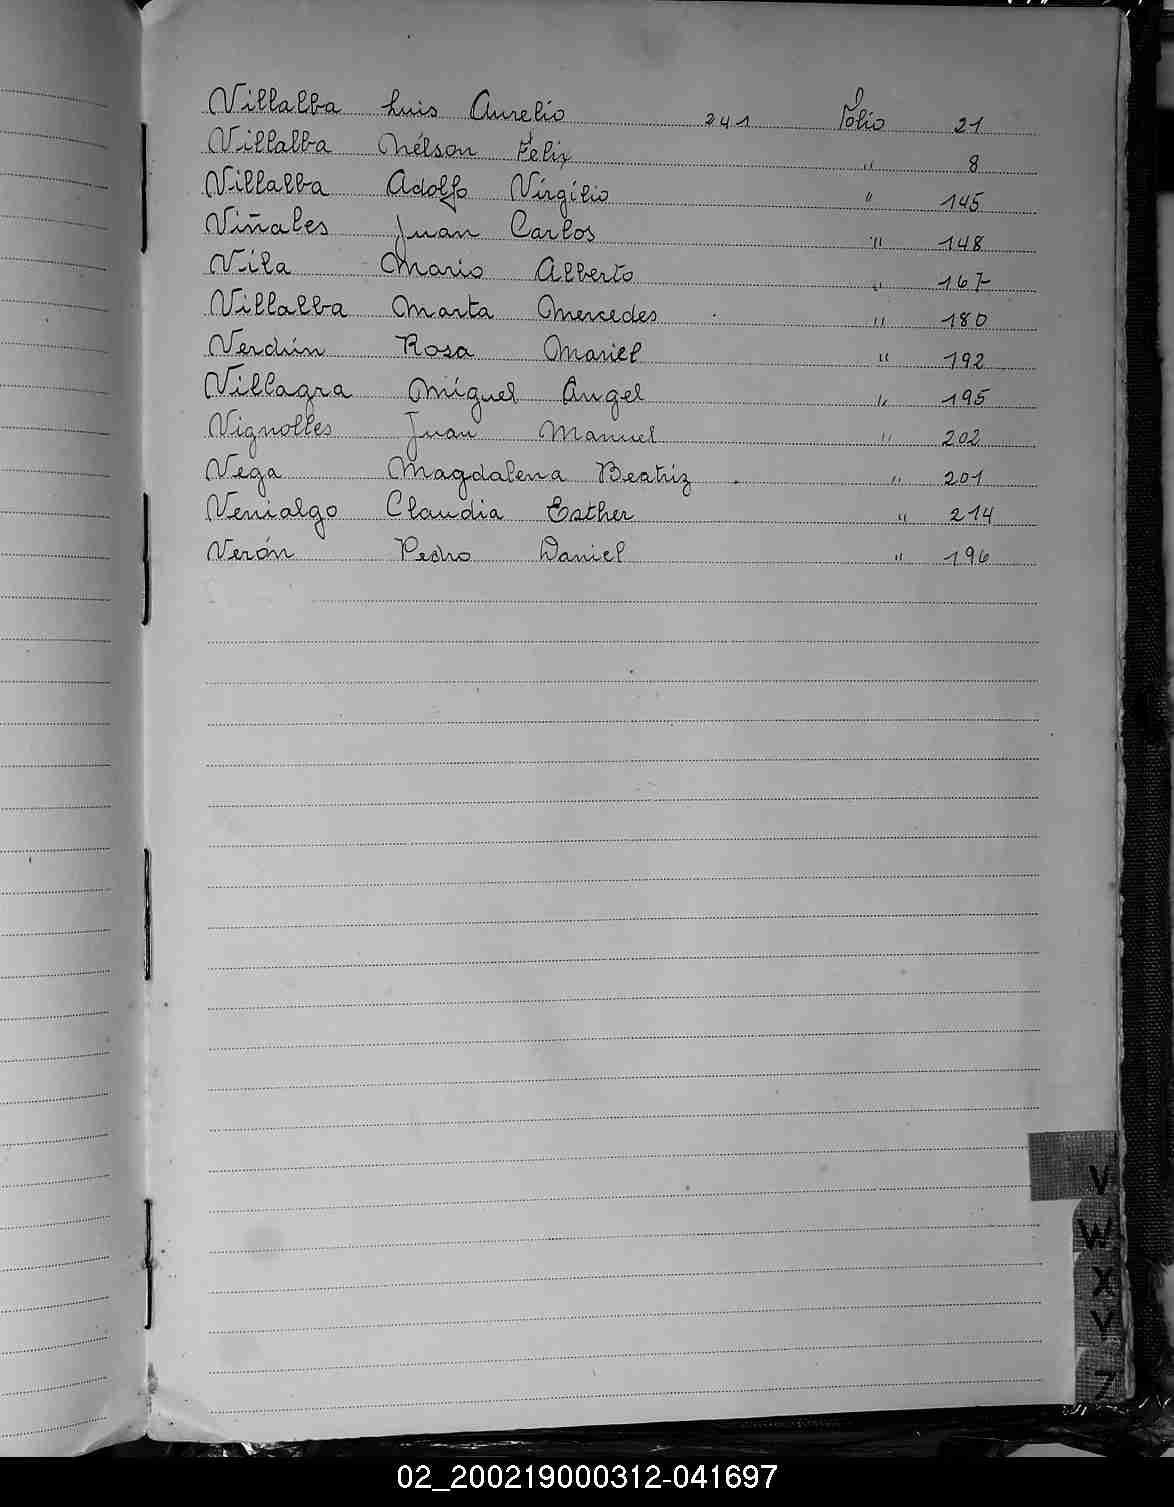 Villalba Luis Aurelio 241 Folio 21
Villalba Nélson Felix " 8
Villalba Adolfo Virgilio " 145
Viñales Juan Carlos " 148
Vila Mario Alberto " 167
Villalba Marta Mercedes " 180
Verdún Rosa Mariel " 192
Villagra Miguel Angel " 195
Vignolles Juan Manuel " 202
Vega Magdalena Beatriz " 201
Venialgo Claudia Esther " 214
Verón Pedro Daniel " 196
V
W
X
Y
Z
02_200219000312-041697